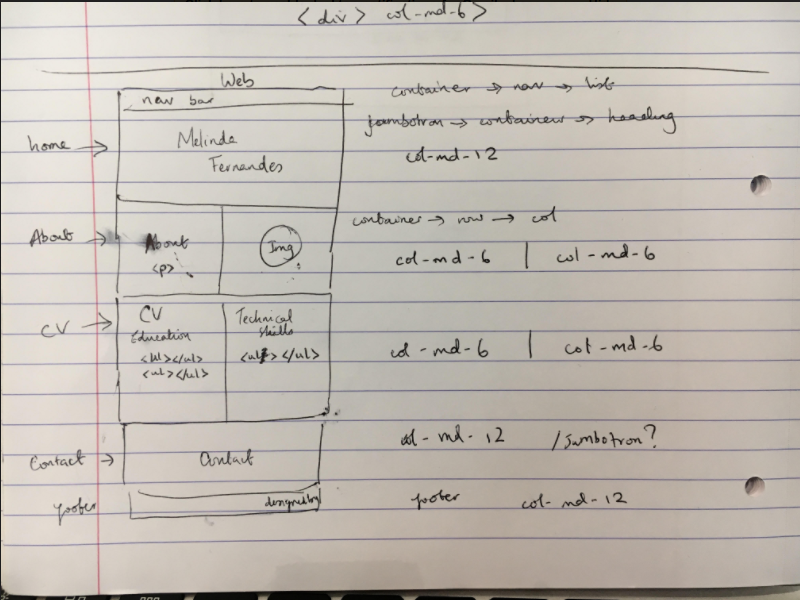 <div> col-md-6>
Web
nav bar
container → nav → list
home →
Melinda
Fernandes
jumbotron → container → heading
col-md-12
About →
About
<p>
Img
container → row → col
col-md-6 | col-md-6
CV →
CV
Education
<ul></ul>
<ul></ul>
Technical
skills
<ul></ul>
col-md-6 | col-md-6
Contact →
Contact
col-md-12 /Jumbotron?
footer
designed by
footer col-md-12